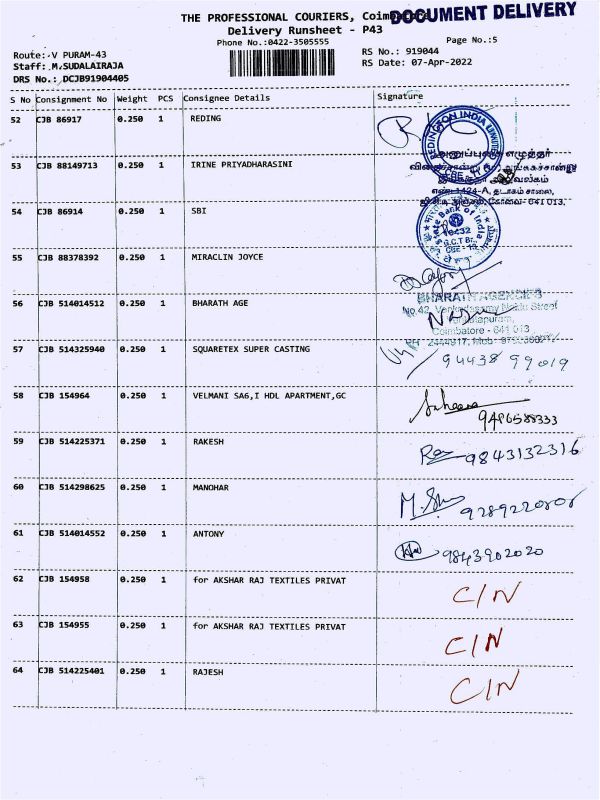 THE PROFESSIONAL COURIERS, Coimbatore
DOCUMENT DELIVERY
Delivery Runsheet - P43
Phone No.:0422-3505555
Page No.:5
Route:-V PURAM-43
RS No.: 919044
Staff: M.SUDALAIRAJA
RS Date: 07-Apr-2022
DRS No.: DCJB91904405
S No Consignment No Weight PCS Consignee Details Signature
52 CJB 86917 0.250 1 REDING
REDINGTON INDIA LIMITED
CBE
அனுப்புனர் எழுத்தர்
53 CJB 88149713 0.250 1 IRINE PRIYADHARASINI
எண்: 1424-A, தடாகம் சாலை,
கோவை- 641 013.
54 CJB 86914 0.250 1 SBI
State Bank of India
10432
G.C.T Br.,
CBE - 13
55 CJB 88378392 0.250 1 MIRACLIN JOYCE
56 CJB 514014512 0.250 1 BHARATH AGE
BHARATH AGENCIES
No.42, Venkadasamy Naidu Street
Coimbatore - 641 013
57 CJB 514325940 0.250 1 SQUARETEX SUPER CASTING
PH : 2444917, Mob :
94438 99019
58 CJB 154964 0.250 1 VELMANI SA6,I HDL APARTMENT,GC
9486588333
59 CJB 514225371 0.250 1 RAKESH
9843132316
60 CJB 514298625 0.250 1 MANOHAR
61 CJB 514014552 0.250 1 ANTONY
9843902020
62 CJB 154958 0.250 1 for AKSHAR RAJ TEXTILES PRIVAT C/N
63 CJB 154955 0.250 1 for AKSHAR RAJ TEXTILES PRIVAT C/N
64 CJB 514225401 0.250 1 RAJESH C/N